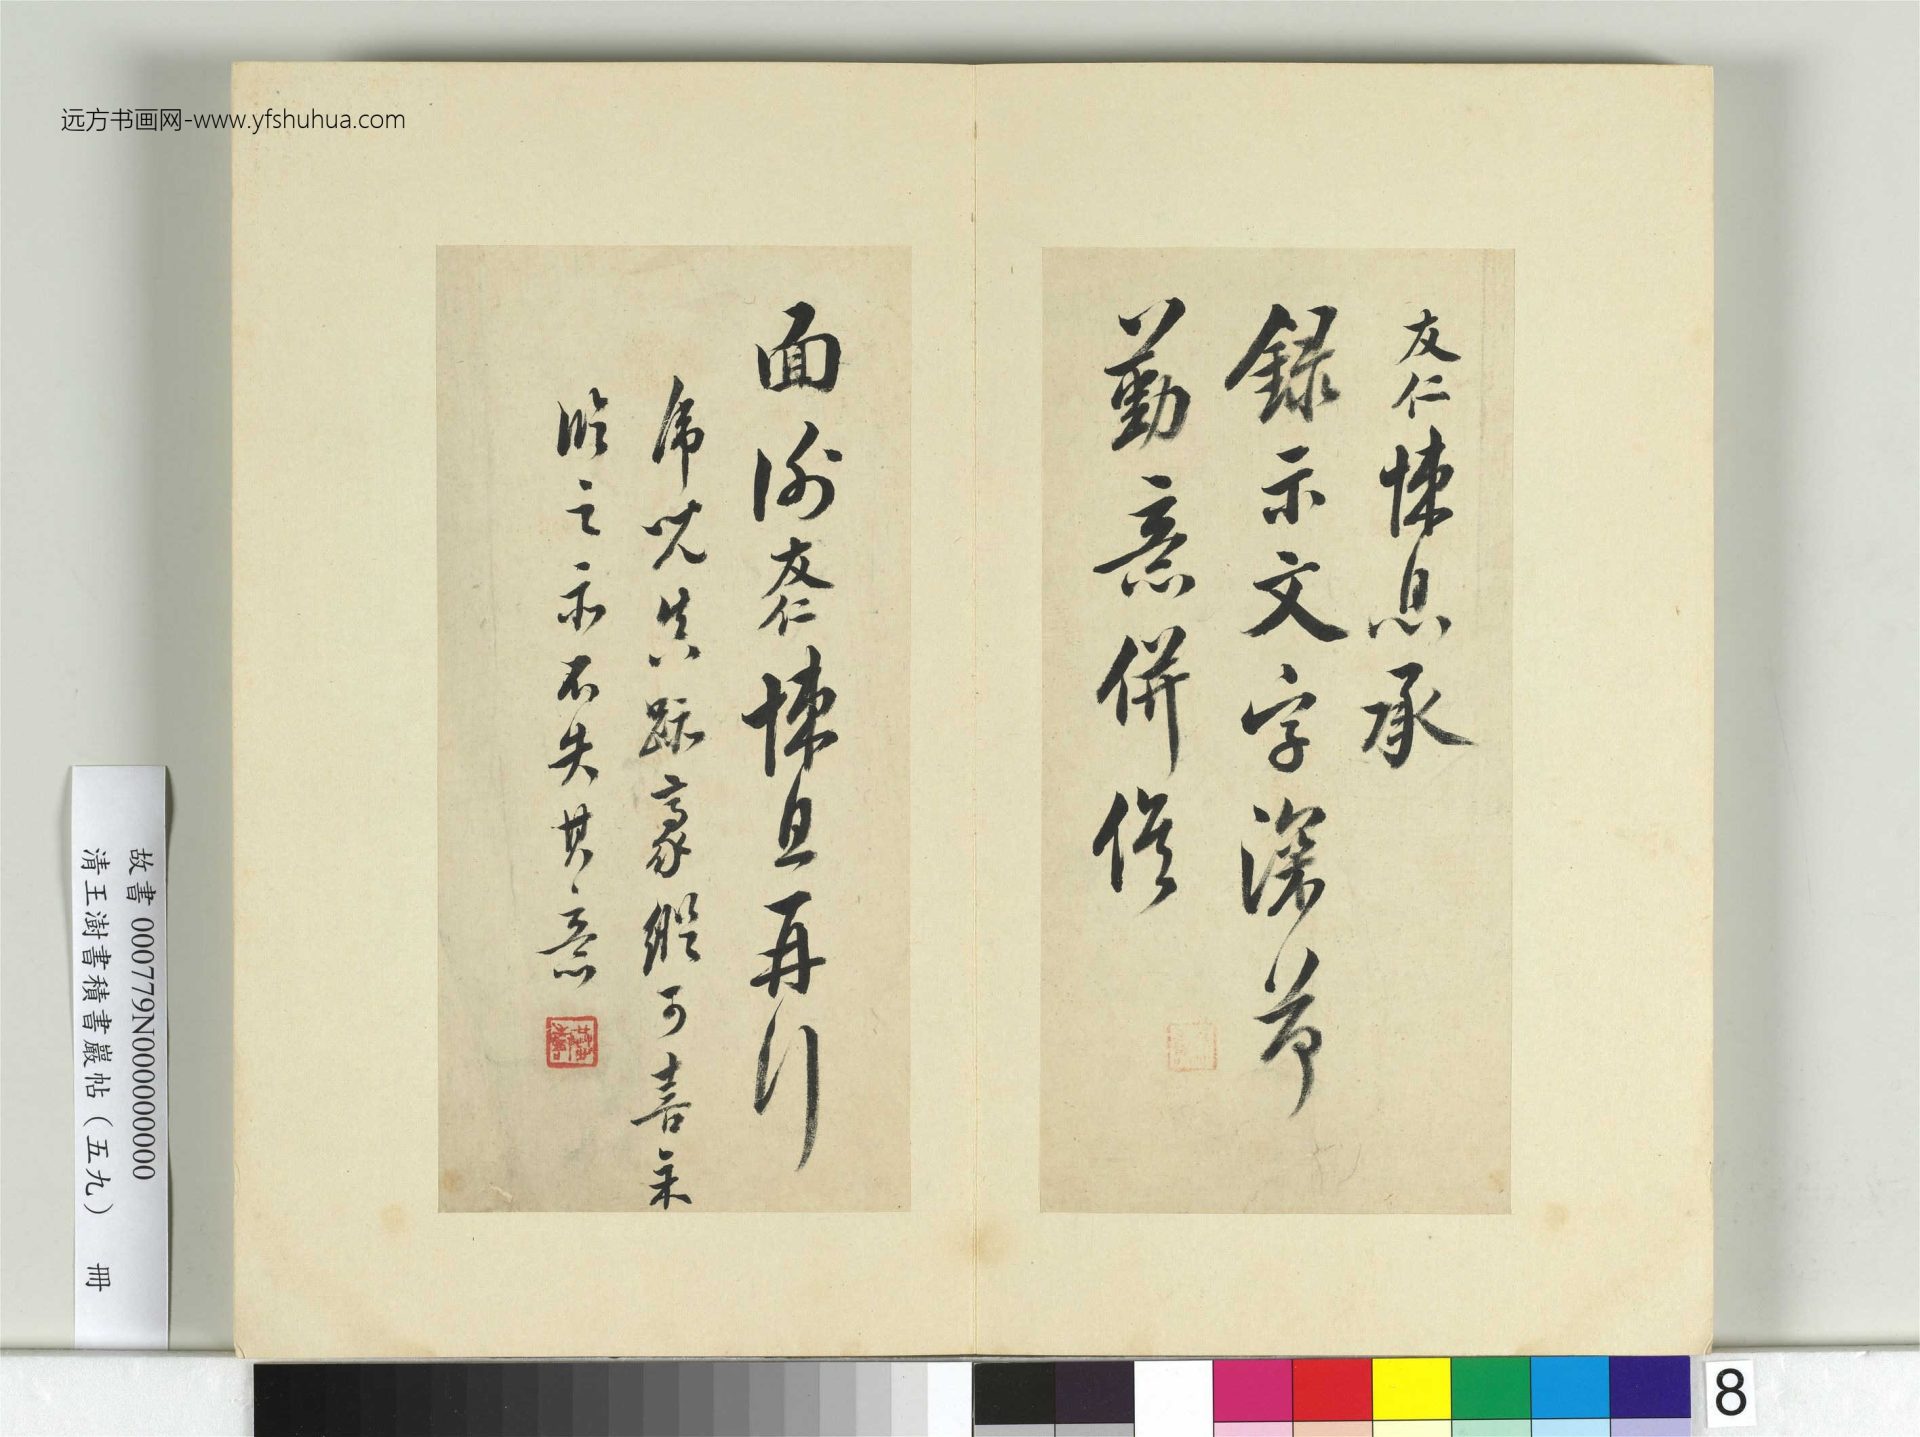 远方书画网-www.yfshuhua.com
友仁悚息承
録示文字深荷
勤意併俟
面謝友仁悚息再行
虎兒真跡豪縱可喜余
臨之亦不失其意
故書 000779N000000000
清王澍書積書巖帖（五九） 冊
8